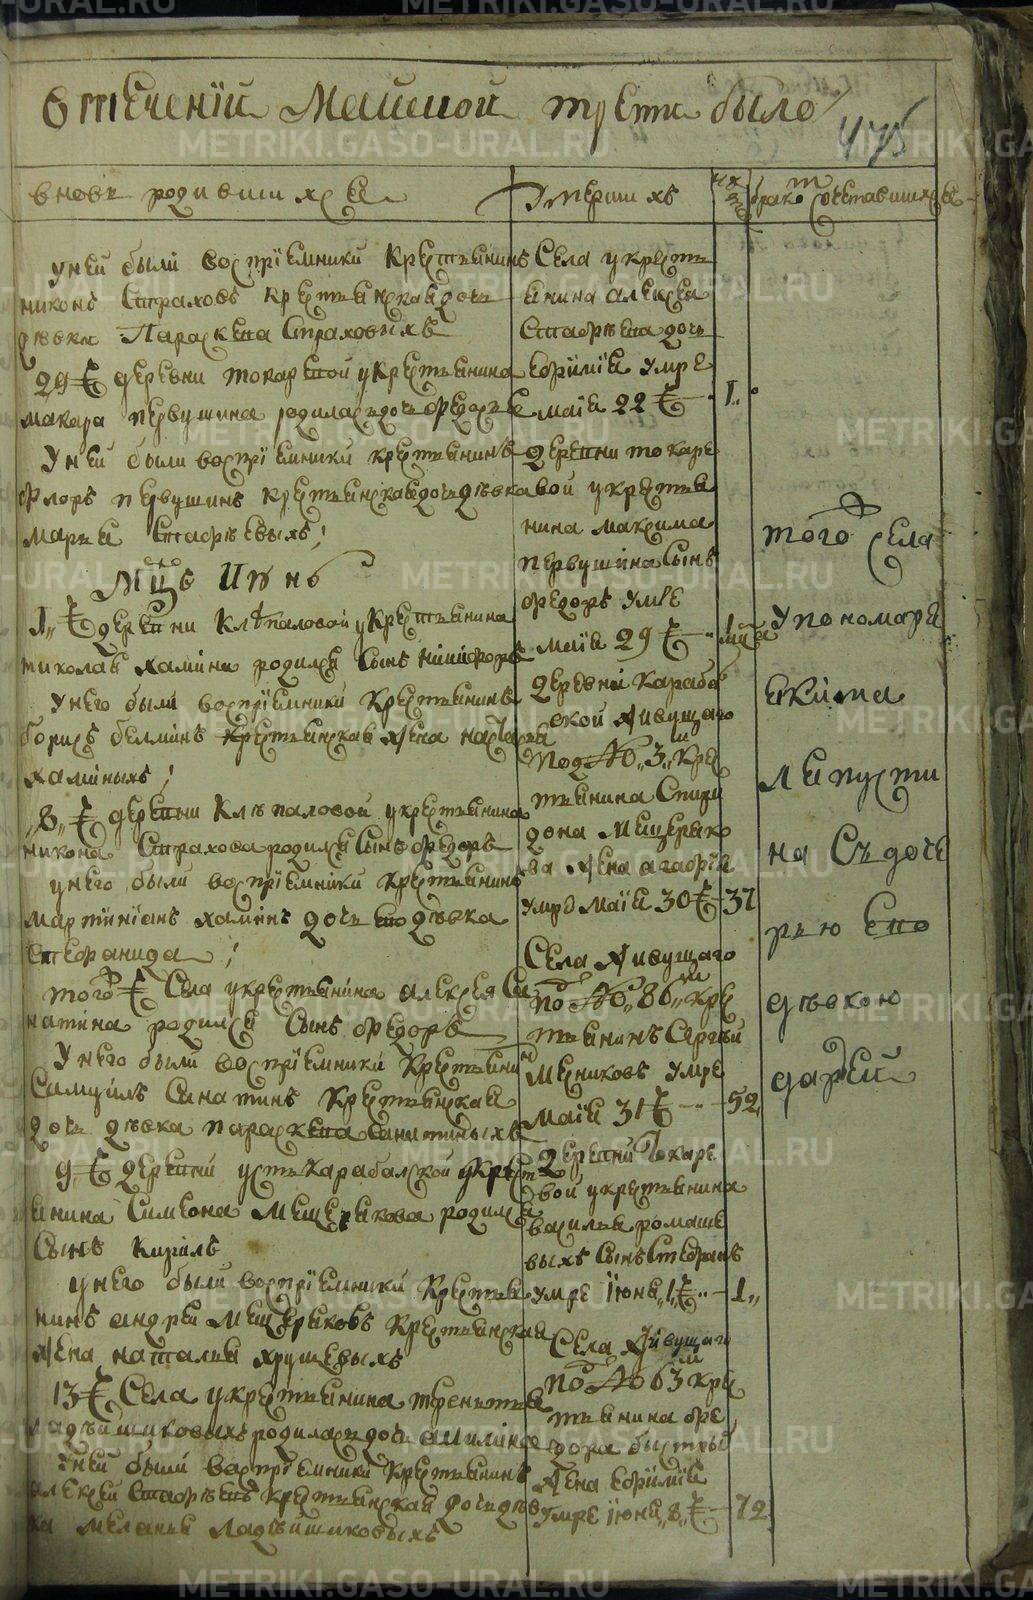 в течении Майской трети было
475
вновь родившихся
Умерших
браком сочетавшихся
у ней были восприемники крестьянинъ
никонъ Страховъ крестьянская дочь
девка Параскева Страховыхъ
29 е деревни токаревой у крестьянина
макара первушина родилась дочь федосья
У ней были восприемники крестьянинъ
флоръ первушинъ крестьянская дочь девка
марья Евстафьевыхъ
Мцъ Июнь
1 е деревни Клепаловой у крестьянина
николая хамина родился сынъ никифоръ
у него были восприемники крестьянинъ
борисъ крестьянская жена
хаминыхъ
8 е деревни Клепаловой у крестьянина
никона Страхова родился сынъ федоръ
у него были восприемники крестьянинъ
мартинианъ хаминъ дочь ево девка
Стефанида
того е Села у крестьянина алексея Са
натина родился Сынъ федоръ
У него были восприемники крестьянинъ
Самуилъ Санатинъ крестьянская
дочь девка параскева санатиныхъ
9 е деревни усть карабалской у крест
янина Симеона Мещерякова родился
Сынъ Кирилъ
у него были восприемники крестья
нинъ андрей Мещеряковъ крестьянская
жена наталья хрущевыхъ
13 е Села у крестьянина терентья
ладейщиковыхъ родилась дочь акилина
У ней были восприемники крестьянинъ
алексей Евстафьевъ крестьянская дочь дев
ка меланья Ладейщиковыхъ
Села у крестья
янина алексея
Евстафьева дочь
ефимия умре
маия 22 е 1
деревни токаре
вой у крестья
нина максима
первушина Сынъ
федоръ умре
маия 29 е
деревни Караба
ской живущаго
под № 3 м кре
стьянина Спири
дона Мещеряко
ва жена агафия
умре маия 30 е 37
Села живущаго
по № 86 м кре
стьянинъ Сергий
Мясниковъ умре
маия 31 е 52
деревни токаре
вой у крестьянина
василья ромаше
выхъ сынъ Стефанъ
умре июня 1 е 1
Села живущаго
по № 63 м кре
стьянина фе
дора быстрых
жена ефимия
умре июня 8 е 72
того села
У пономаря
екима
лепусти
на съ доче
рью ево
девкою
дарьей
METRIKI.GASO-URAL.RU